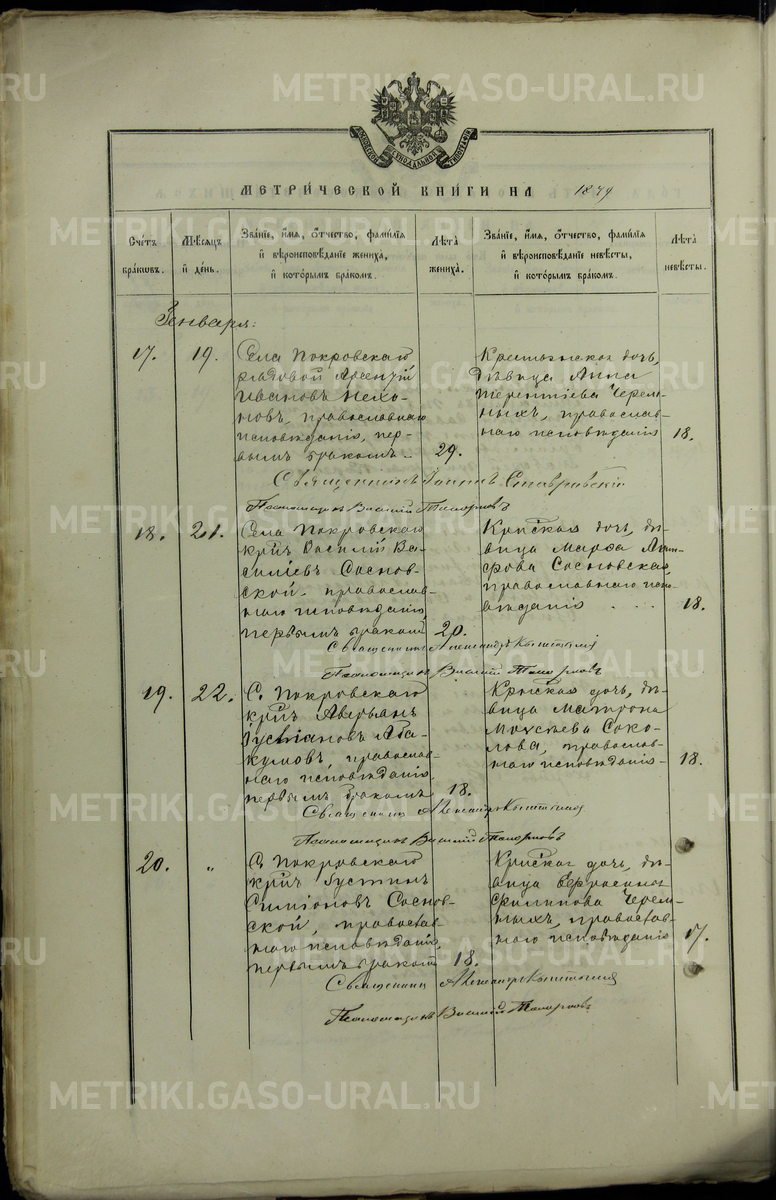 METRIKI.GASO-URAL.RU
МОСКОВСКОЙ СѴНОДАЛЬНОЙ ТИПОГРАФІИ
МЕТРИ́ЧЕСКОЙ КНИ́ГИ НА 1879
Сче́тъ бра́ковъ.
Мѣ́сяцъ и҆ де́нь.
Зва́нїе, и҆́мѧ, ѻ҆́тчество, фами́лїѧ и҆ вѣроисповѣ́данїе жениха̀, и҆ кото́рымъ бра́комъ.
Лѣ́та жениха̀.
Зва́нїе, и҆́мѧ, ѻ҆́тчество, фами́лїѧ и҆ вѣроисповѣ́данїе невѣ́сты, и҆ кото́рымъ бра́комъ.
Лѣ́та невѣ́сты.
Генваря:
17. 19.
Села Покровскаго
рядовой Арсений
Ивановъ Нехо-
новъ, православнаго
исповѣданія, пер-
вымъ бракомъ
29.
Крестьянская дочь,
дѣвица Анна
Терентіева Черем-
ныхъ, православ-
наго исповѣданія
18.
Священникъ Іоаннъ
Пономарь Василій
18. 21.
Села Покровскаго
кр\-нъ Василій Ва-
силіевъ Соснов-
ской, православ-
наго исповѣданія,
первымъ бракомъ
20.
Кр\-ская дочь, дѣ-
вица Марѳа
Сосновская,
православнаго испо-
вѣданія
18.
Священникъ Александръ
Василій
19. 22.
С. Покровскаго
кр\-нъ Аверьянъ
Іустиановъ Аба-
кумовъ, православ-
наго исповѣданія,
первымъ бракомъ
18.
Кр\-ская дочь, дѣ-
вица Матрона
Моисѣева Соко-
лова, православ-
наго исповѣданія
18.
Священникъ Александръ
Василій
20. "
С. Покровскаго
кр\-нъ Іустинъ
Симіоновъ Соснов-
ской, православ-
наго исповѣданія,
первымъ бракомъ
18.
Кр\-ская дочь, дѣ-
вица Евфросинія
Филипова Черем-
ныхъ, православ-
наго исповѣданія
17.
Священникъ Александръ
Василій
METRIKI.GASO-URAL.RU